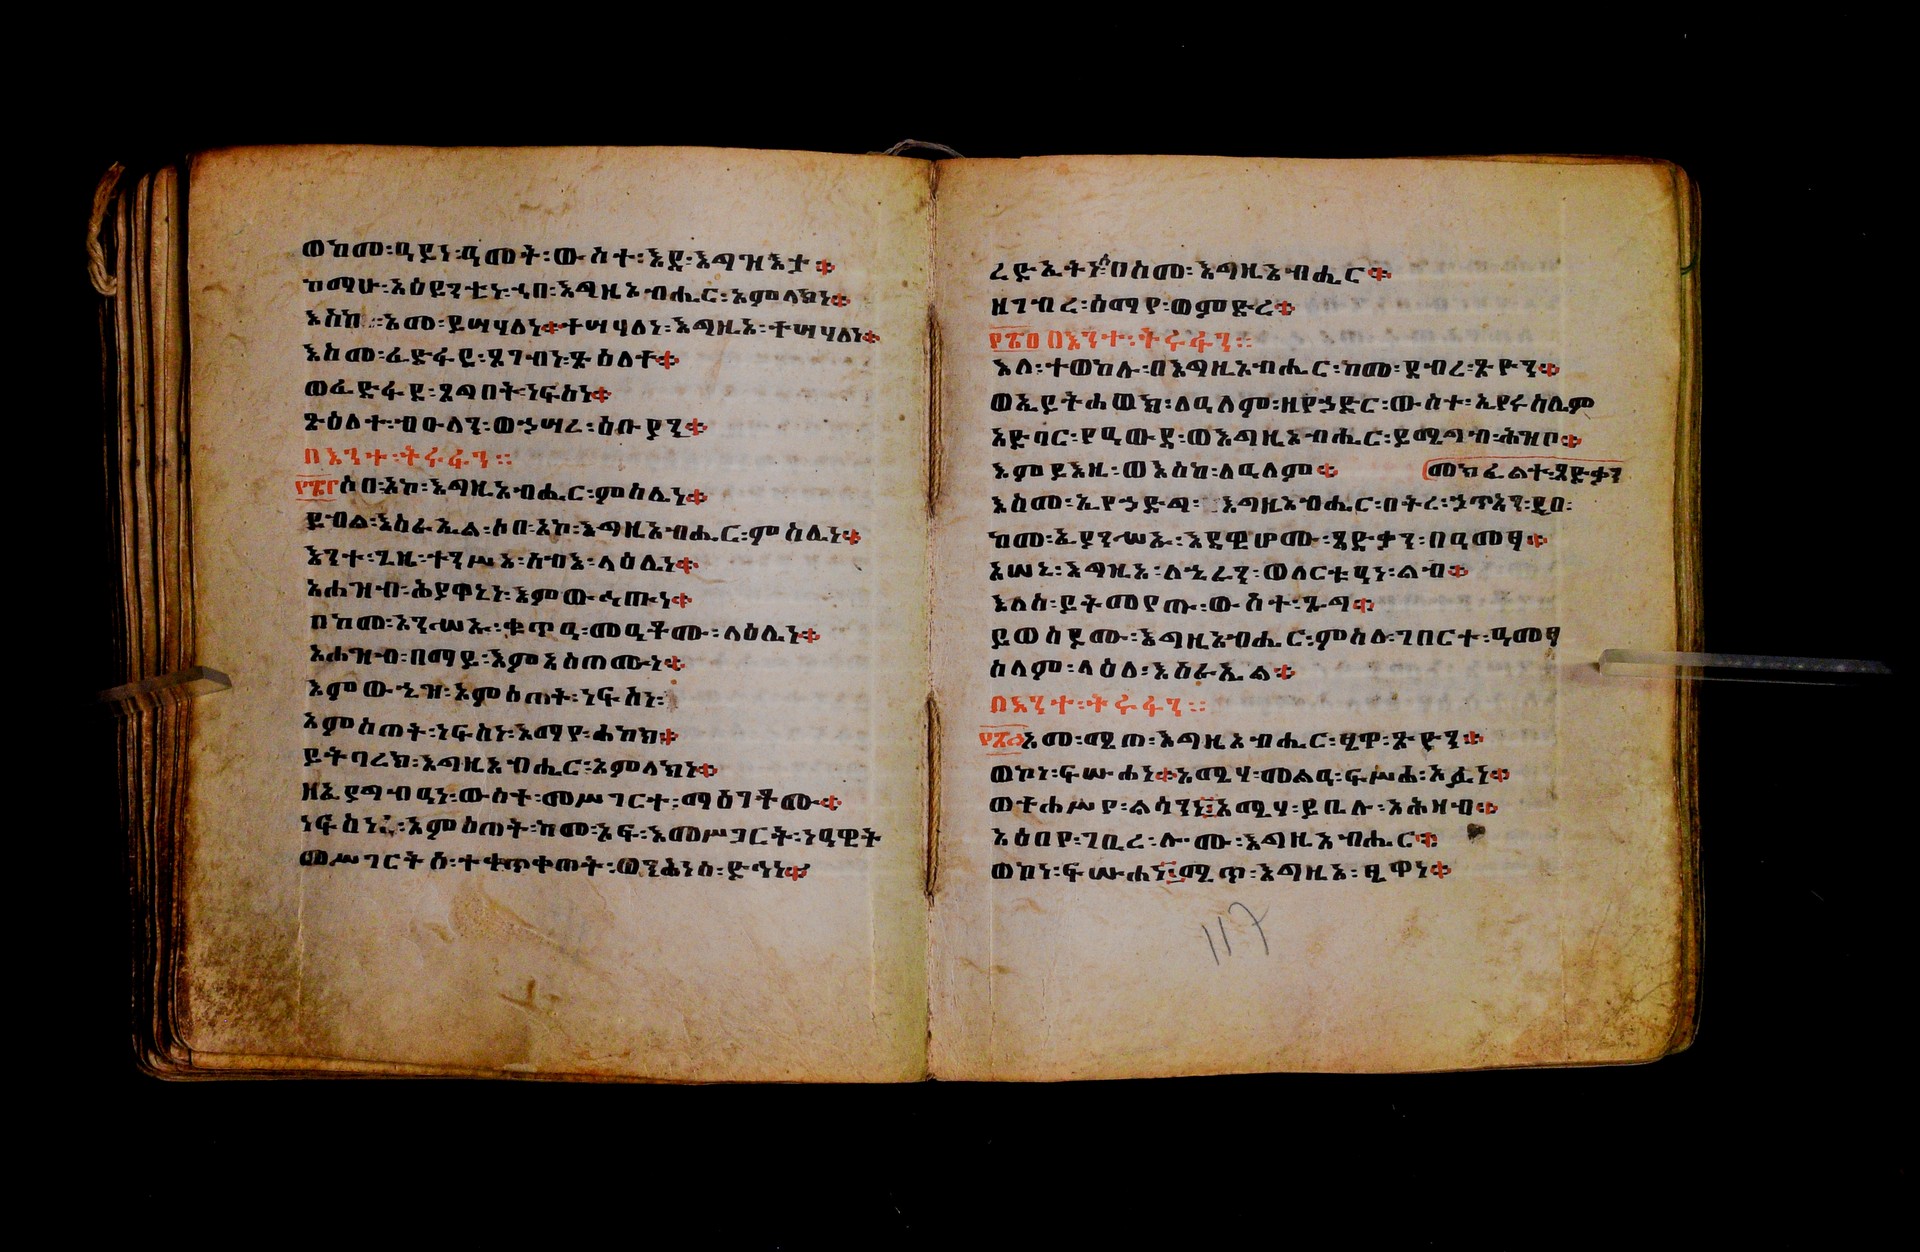 ወከመ፡ዓይነ፡ዓመት፡ውስተ፡እደ፡እግዝእታ።
ከማሁ፡አዕይንቲነ፡ኀበ፡እግዚአብሔር፡አምላክነ።
እስከ፡እመ፡ይሣሃለነ።ተሣሃለነ፡እግዚኦ፡ተሣሃለነ።
እስመ፡ፈድፋደ፡ጸገብነ፡ጽዕለተ።
ወፈድፋደ፡ጸግበት፡ነፍስነ።
ጽዕለተ፡ብዑላን፡ወኃሣረ፡ዕቡያን።
በእንተ፡ትሩፋን።
፻፳፫ሶበ፡አኮ፡እግዚአብሔር፡ምስሌነ።
ይብል፡እስራኤል፡ሶበ፡አኮ፡እግዚአብሔር፡ምስሌነ።
እንተ፡ጊዜ፡ተንሥአ፡ሰብእ፡ላዕሌነ።
አሐዝብ፡ሕያዋኒነ፡እምውኅጡነ።
በከመ፡አንሥአ፡ቁጥዓ፡መዓቶሙ፡ላዕሌነ።
አሐዝብ፡በማይ፡እምአስጠሙነ።
እምውኂዝ፡እምዕጠት፡ነፍስነ፡
እምስጠት፡ነፍስነ፡እማየ፡ሐከክ።
ይትባረክ፡እግዚአብሔር፡አምላክነ።
ዘኢያግብዓነ፡ውስተ፡መሥገርተ፡ማዕገቶሙ።
ነፍስነ፡እምዕጠት፡ከመ፡ዖፍ፡እመሥገርት፡ነዓዊት
መሥገርትሰ፡ተቀጥቀጠት፡ወንሕነሰ፡ድኅነ።
ረድኤትነ፡በስመ፡እግዚአብሔር።
ዘገብረ፡ሰማየ፡ወምድረ።
፻፳፬ በእንተ፡ትሩፋን።
እለ፡ተወከሉ፡በእግዚአብሔር፡ከመ፡ደብረ፡ጽዮን።
ወኢይትሐወክ፡ለዓለም፡ዘየኃድር፡ውስተ፡ኢየሩሳሌም
አድባር፡የዓውዳ፡ወእግዚአብሔር፡ይሜግብ፡ሕዝቦ።
እምይእዜ፡ወእስከ፡ለዓለም።
መክፈልተ፡ጻድቃን
እስመ፡ኢየኃድግ፡እግዚአብሔር፡በትረ፡ኃጥአን፡ዲበ፡
ከመ፡ኢያንሥኡ፡እደዊሆሙ፡ጻድቃን፡በዓመፃ።
አሠኒ፡እግዚኦ፡ለኄራን፡ወለርቱዓነ፡ልብ።
እለሰ፡ይትመየጡ፡ውስተ፡ጌጋ።
ይወስዶሙ፡እግዚአብሔር፡ምስለ፡ገበርተ፡ዓመፃ
ሰላም፡ላዕለ፡እስራኤል።
በእንተ፡ትሩፋን።
፻፳፭እመ፡ሜጠ፡እግዚአብሔር፡ፂዋ፡ጽዮን።
ወኮነ፡ፍሡሐነ።አሜሃ፡መልዓ፡ፍሥሐ፡አፉነ።
ወተሐሥየ፡ልሳንነ፡አሜሃ፡ይቤሉ፡አሕዛብ።
አዕበየ፡ገቢረ፡ሎሙ፡እግዚአብሔር።
ወኮነ፡ፍሡሐነ፡ሚጥ፡እግዚኦ፡ፂዋነ።
117